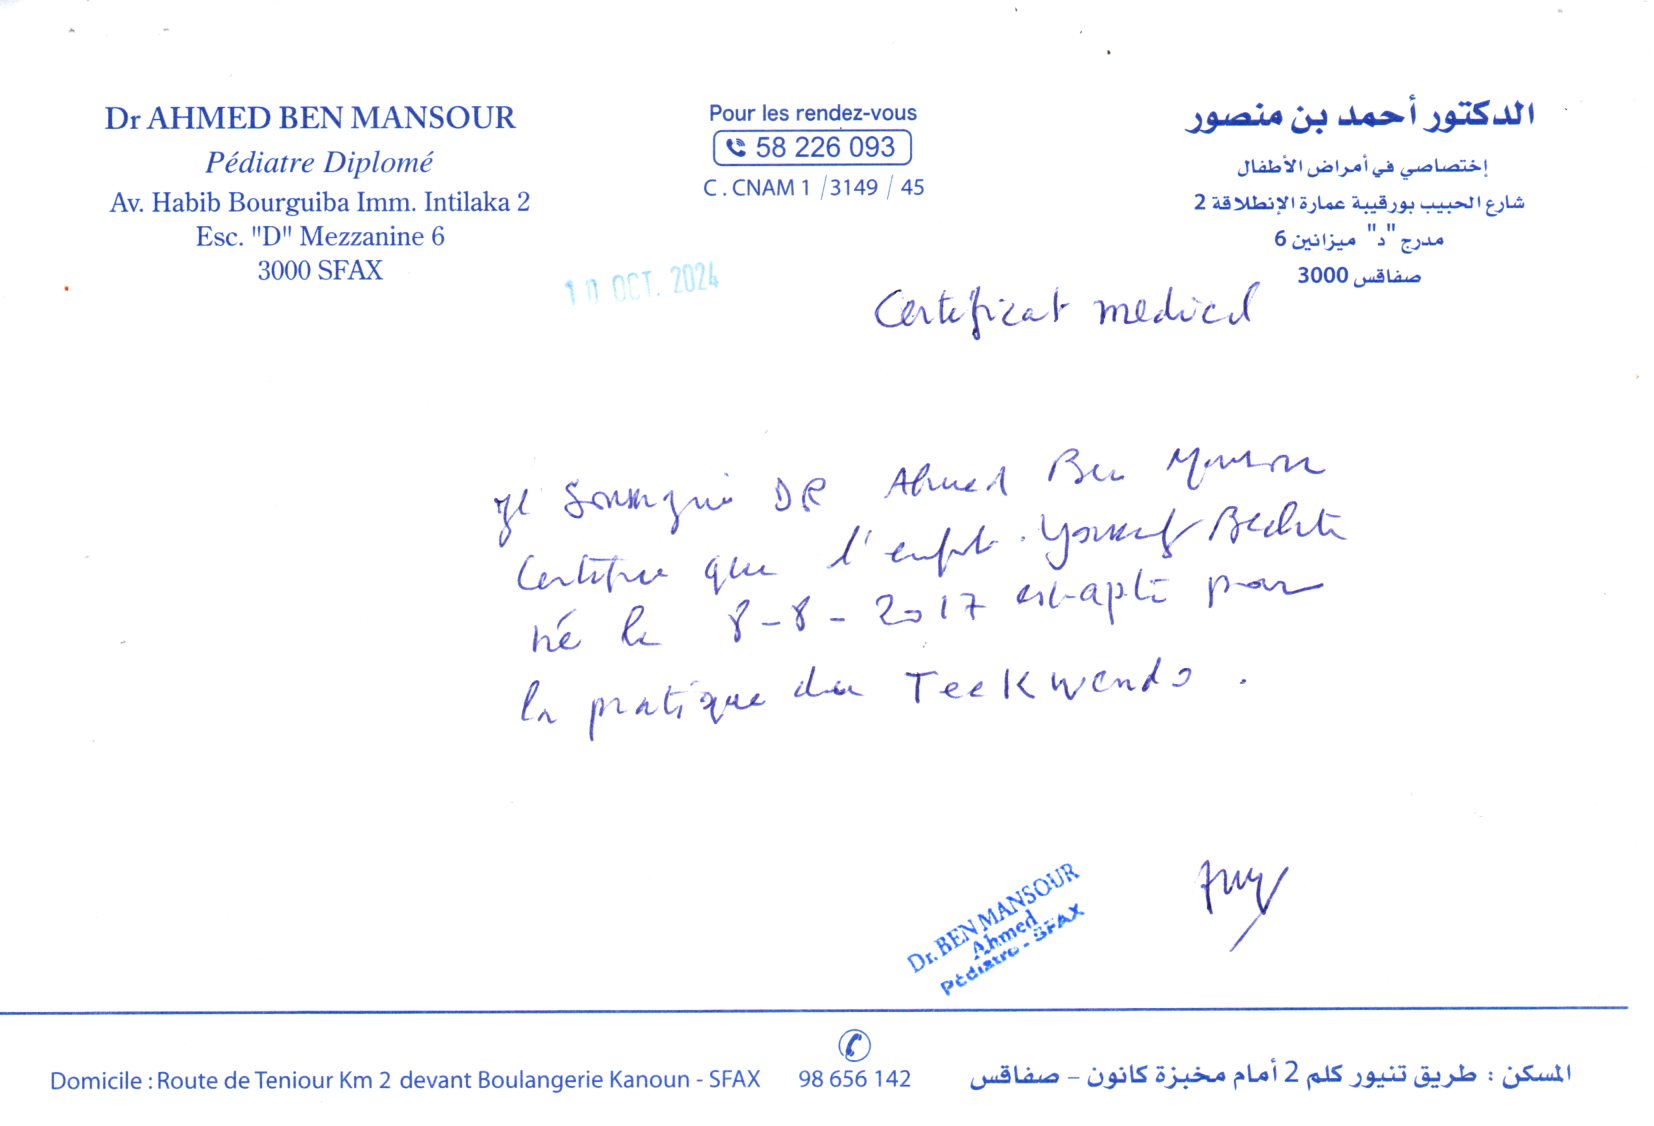 Dr AHMED BEN MANSOUR
Pédiatre Diplomé
Av. Habib Bourguiba Imm. Intilaka 2
Esc. "D" Mezzanine 6
3000 SFAX
Pour les rendez-vous
58 226 093
C . CNAM 1 / 3149 / 45
الدكتور أحمد بن منصور
إختصاصي في أمراض الأطفال
شارع الحبيب بورقيبة عمارة الإنطلاقة 2
مدرج "د" ميزانين 6
صفاقس 3000
10 OCT. 2024
Certificat medical
je soussigné DR Ahmed Ben Mansour
Certifie que l'enfant Youssef
né le 8-8-2017 est apte pour
la pratique du Teekwendo .
Dr. BEN MANSOUR
Ahmed
Pédiatre - SFAX
Domicile : Route de Teniour Km 2 devant Boulangerie Kanoun - SFAX
98 656 142
المسكن : طريق تنيور كلم 2 أمام مخبزة كانون – صفاقس